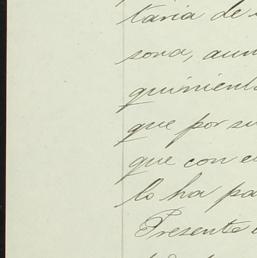 taria de
sona, aun
quinient
que por su
que con e
lo ha pa
Presente